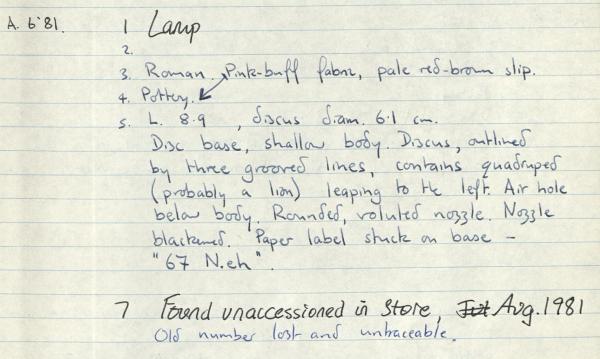 A. 6'81. 1 Lamp
2.
3. Roman. Pink-buff fabric, pale red-brown slip.
4. Pottery.
5. L. 8.9 , discus diam. 6.1 cm.
Disc base, shallow body. Discus, outlined
by three grooved lines, contains quadruped
(probably a lion) leaping to the left. Air hole
below body. Rounded, voluted nozzle. Nozzle
blackened. Paper label stuck on base –
"67 N.eh".
7 Found unaccessioned in Store, Aug. 1981
Old number lost and untraceable.